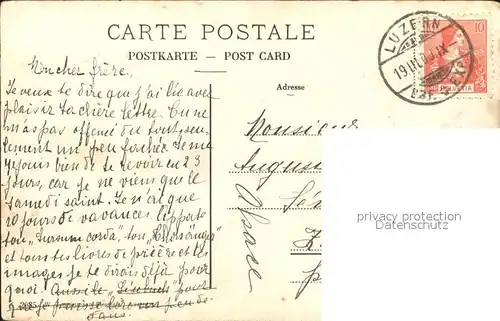 CARTE POSTALE
POSTKARTE — POST CARD
Adresse
LUZERN
19.III.09.IX
10
HELVETIA
Mon cher frère,
Je veux te dire que j'ai lu avec
plaisir ta chère lettre. Tu ne
m'as pas offensé du tout, seu-
lement un peu fachée. Je me
rejouis bien de te revoir en 23
jours, car je ne viens que le
samedi saint. Je n'ai que
10 jours de vacances. Apporte
ton „Sursum corda", ton
tous tes livres de prière et les
images je te dirais déjà pour
quoi. Aussi le pour
que je puisse lire un peu de-
dans.
Monsieur
August
Alsace
privacy protection
Datenschutz